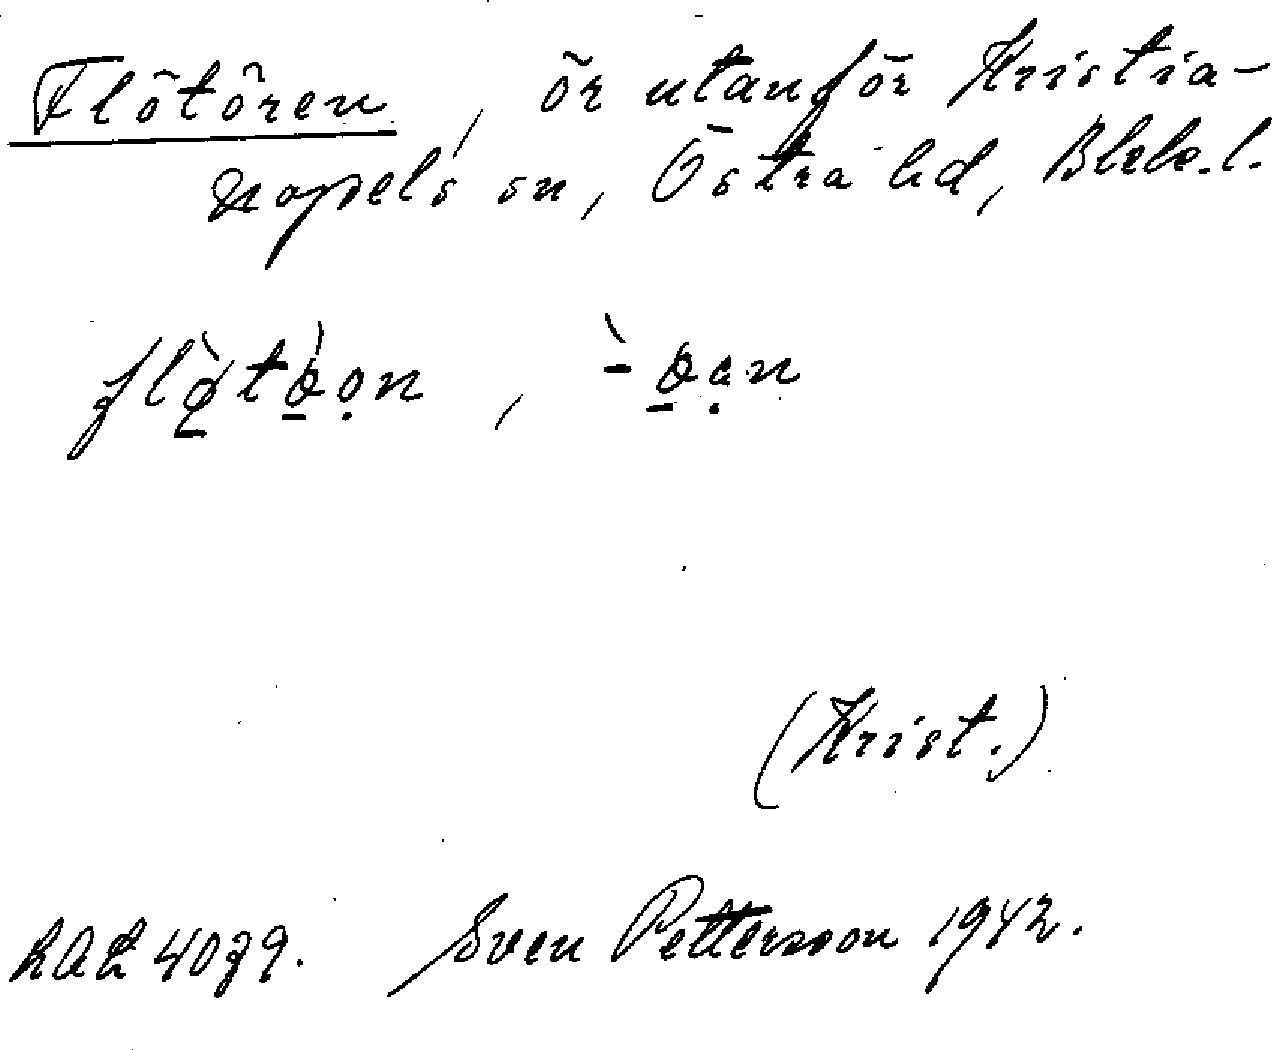 Flötören, ör utanför Kristia-
nopels sn, Östra hd, Blek. l.
(Krist.)
LAL 4079. Sven Pettersson 1942.